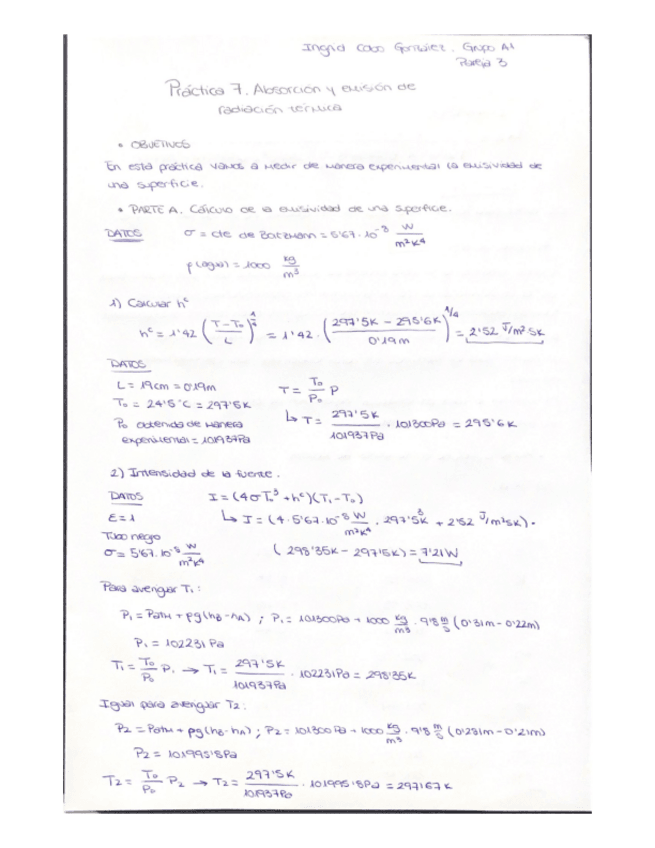 Ingrid Cobo González. Grupo A1
Pareja 3
Práctica 7. Absorción y emisión de
radiación térmica
• OBJETIVOS
En esta práctica vamos a medir de manera experimental la emisividad de
una superficie.
• PARTE A. Cálculo de la emisividad de una superficie.
DATOS σ = cte de Botzmann = 5'67·10⁻⁸ W/m²K⁴
ρ(agua) = 1000 kg/m³
1) Calcular hᶜ
hᶜ = 1'42 ((T-T₀)/L)^(1/4) = 1'42 · ((297'5K - 295'6K)/0'19m)^(1/4) = 2'52 J/m²sK
DATOS
L = 19cm = 0'19m T = T₀/P₀ P
T₀ = 24'5°C = 297'5K
↳ T = 297'5K/101937Pa · 101300Pa = 295'6K
P₀ obtenida de manera
experimental = 101937Pa
2) Intensidad de la fuente.
DATOS I = (4σT₀³ + hᶜ)(T₁-T₀)
ε = 1 ↳ I = (4·5'67·10⁻⁸ W/m²K⁴ · 297'5K³ + 2'52 J/m²sK) ·
Tubo negro
σ = 5'67·10⁻⁸ W/m²K⁴ (298'35K - 297'5K) = 7'21W
Para averiguar T₁:
P₁ = Patm + ρg(hB-hA); P₁ = 101300Pa + 1000 kg/m³ · 9'8 m/s (0'31m - 0'22m)
P₁ = 102231 Pa
T₁ = T₀/P₀ P₁ → T₁ = 297'5K/101937Pa · 102231Pa = 298'35K
Igual para averiguar T2:
P2 = Patm + ρg(hB-hA); P2 = 101300 Pa + 1000 kg/m³ · 9'8 m/s (0'281m - 0'21m)
P2 = 101995'8Pa
T2 = T₀/P₀ P2 → T2 = 297'5K/101937Pa · 101995'8Pa = 297'67K